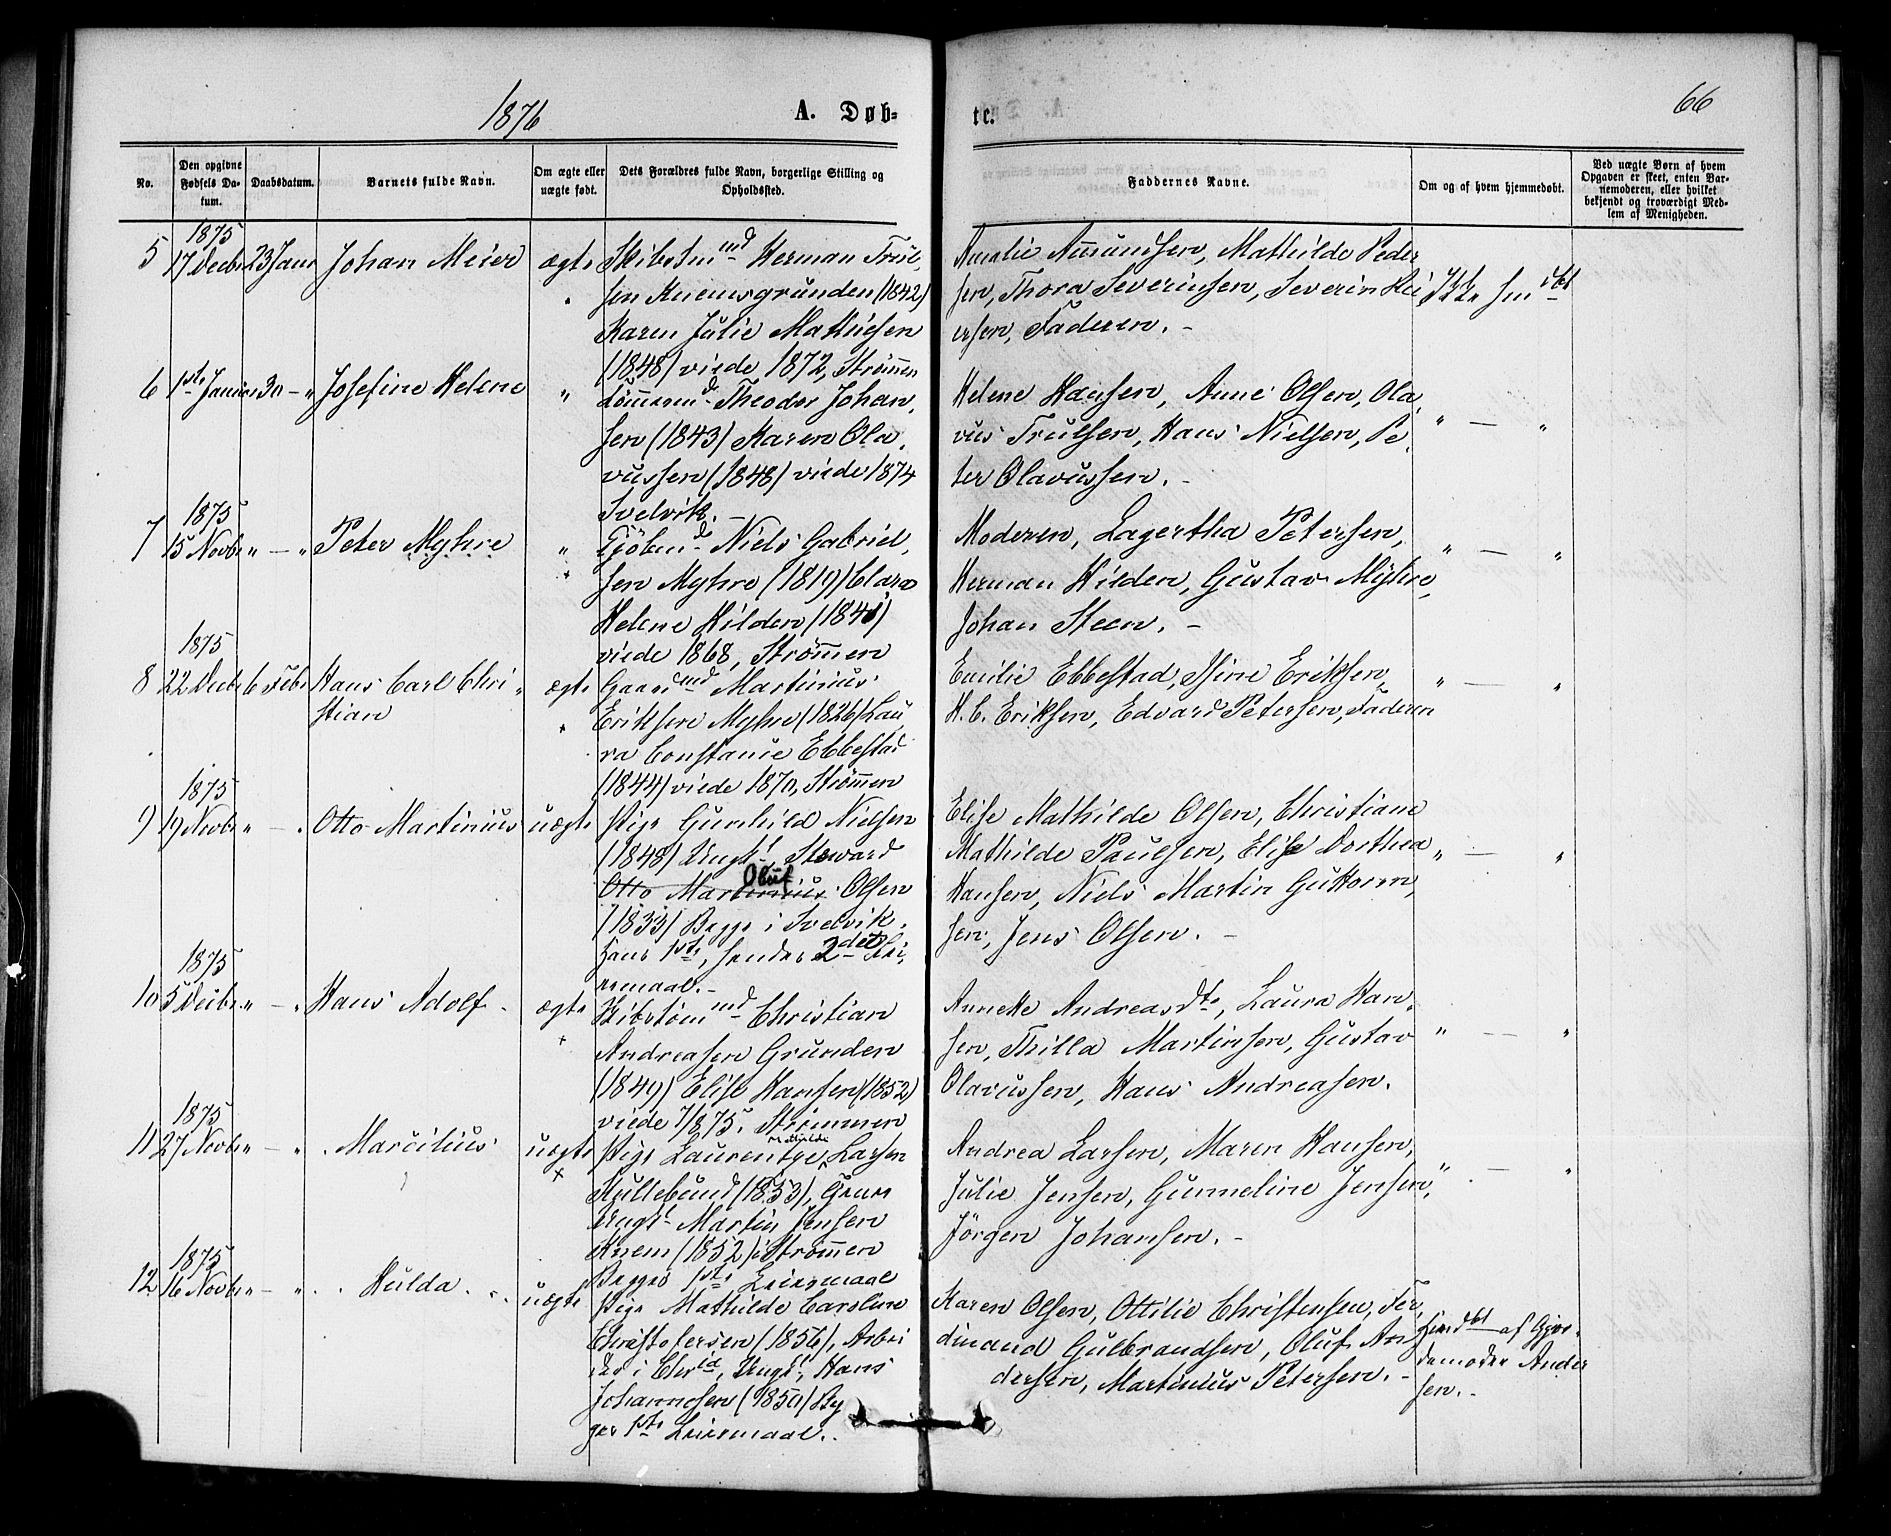 1876
A. Døb=
te.
66
No.
Den opgivne Fødsels Datum.
Daabsdatum.
Barnets fulde Navn.
Om ægte eller uægte født.
Dets Forældres fulde Navn, borgerlige Stilling og Opholdssted.
Faddernes Navne.
Om og af hvem hjemmedøbt.
Ved uægte Børn af hvem Opgaven er skeet, enten Barnemoderen, eller hvilket bekjendt og troværdigt Medlem af Menigheden.
5
1875
17 Decbr
23 Janr
Johan Meier
ægte
Skibstmd Herman Trul,
sen Knemsgrunden (1842)
Karen Julie Mathiesen
(1848) viede 1872, Strømmen
Amalie Amundsen, Mathilde Peder
sen, Thora Severinsen, Severin Hei
ersen, Faderen. –
Ikke hmdbt
6
1ste Januar
30 – "
Josefine Helene
"
Tømmermd Theodor Johan,
sen (1843) Karen Ola,
vussen (1848) viede 1874
Svelvik. –
Helene Hansen, Anne Olsen, Ola,
vus Trulsen, Hans Nielsen, Pe
ter Olavussen. –
" – "
7
1875
15 Novbr
" – "
Peter Myhre
"
Kjøbmd Niels Gabriel,
sen Myhre (1819) Clara
Helene Hilden (1841)
viede 1868, Strømmen
Moderen, Lagertha Petersen,
Herman Hilden, Gustav Myhre,
Johan Steen. –
" – "
8
1875
22 Decbr
6 Febr
Hans Carl Chri
stian
ægte
Gaardmd Martinius
Eriksen Myhre (1826) Lau
ra Constance Ebbestad
(1844) viede 1870, Strømmen
Emilie Ebbestad, Sine Eriksen,
H. C. Eriksen, Edvard Petersen, Faderen
" – "
9
1875
19 Novbr
" – "
Otto Martinius
uægte
Pige Gunhild Nielsen
(1848) Ungk. Steward
Otto Martinius Oluf Olsen
(1833) Begge i Svelvik.
Hans 1ste, hendes 2det Lei,
ermaal. –
Elise Mathilde Olsen, Christiane
Mathilde Paulsen, Elise Dorthea
Hansen, Niels Martin Guttorm,
sen, Jens Olsen. –
" – "
10
1875
5 Decbr
" – "
Hans Adolf
ægte
Skibstømmd Christian
Andreasen Grunden
(1849) Elise Hansen (1852)
viede 1875, Strømmen
Annette Andreasdtr, Laura Han,
sen, Thilla Martinsen, Gustav
Olavussen, Hans Andreasen.
" – "
11
1875
27 Novbr
" – "
Marcilius
uægte
Pige Laurentze Mathilde Larsen
Skullebund (1853),
Ungk. Martin Jensen
Knem (1852) i Strømmen
Begges 1ste Leiermaal
Andrea Larsen, Maren Hansen,
Julie Jensen, Gunneline Jensen,
Jörgen Johansen. –
" – "
12
1875
16 Novbr
" – "
Hulda
uægte
Pige Mathilde Caroline
Christofersen (1856), Arbei
der i Chrnia, Ungk. Hans
Johannesen (1850) Beg
ges 1ste Leiermaal.
Karen Olsen, Ottilie Christensen, Fer,
dinand Gulbrandsen, Oluf An
dersen, Martinius Petersen. –
Hjmdbt af Gjor,
demoder Ander
sen. –